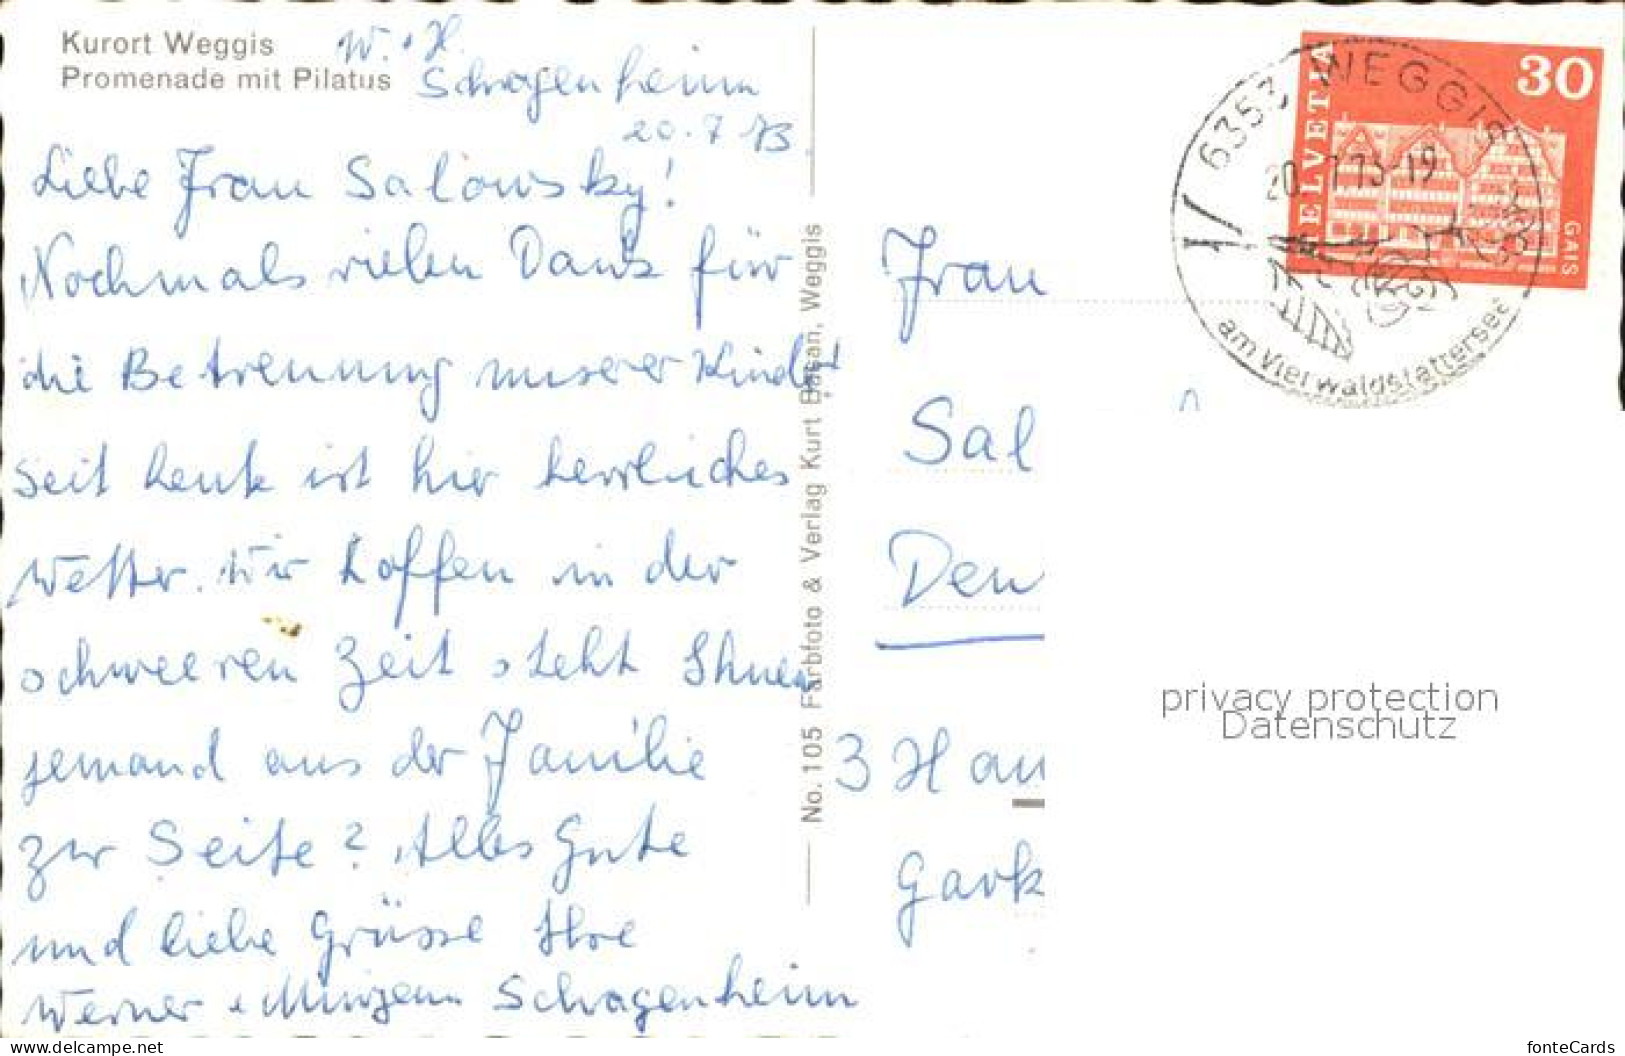 Kurort Weggis
Promenade mit Pilatus
W. + H.
Schragenheim
20.7.73
Liebe Frau Salowsky!
Nochmals vielen Dank für
die Betreuung unserer Kinder!
Seit heute ist hier herrliches
Wetter. Wir hoffen in der
schweeren Zeit steht Ihnen
jemand aus der Familie
zur Seite? Alles Gute
und liebe Grüsse Ihre
Werner + Schragenheim
No. 105 Farbfoto & Verlag Kurt Bösan, Weggis
HELVETIA
30
GAIS
6353 WEGGIS
20.7.73-19
am Vierwaldstättersee
Frau
Sal
Deu
3 Han
Gark
privacy protection
Datenschutz
www.delcampe.net
fonteCards